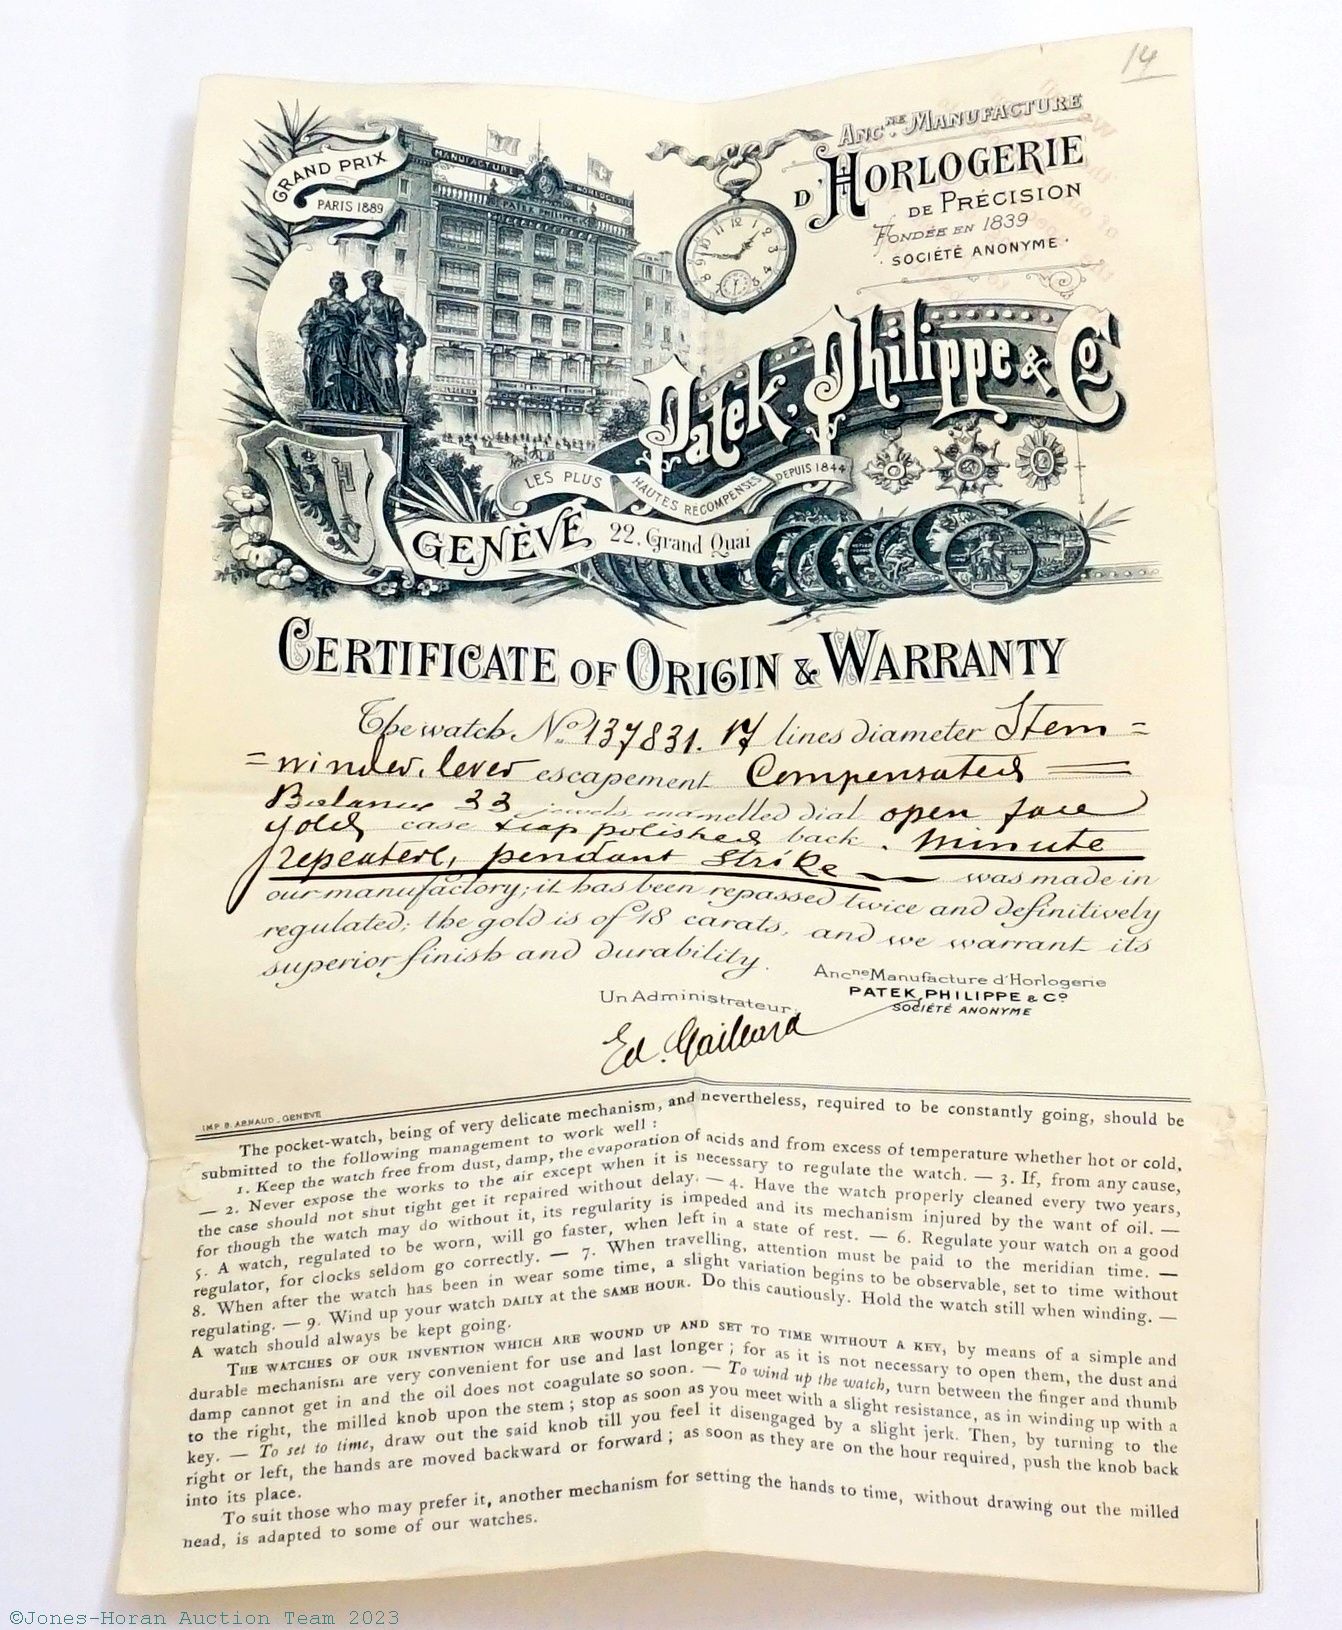 14
GRAND PRIX
PARIS 1889
MANUFACTURE HORLOGERIE
PATEK PHILIPPE & Co
ANCNE. MANUFACTURE
D'HORLOGERIE
DE PRÉCISION
FONDÉE EN 1839
· SOCIÉTÉ ANONYME ·
Patek, Philippe & Co
LES PLUS HAUTES RÉCOMPENSES DEPUIS 1844
GENÈVE 22. Grand Quai
CERTIFICATE OF ORIGIN & WARRANTY
The watch No 137831. 17 lines diameter Stem=
=winder, lever escapement Compensated
Balance 33 jewels enamelled dial open face
gold case polished back. Minute
repeater, pendant strike was made in
our manufactory; it has been repassed twice and definitively
regulated; the gold is of 18 carats, and we warrant its
superior finish and durability.
Ancne Manufacture d'Horlogerie
PATEK, PHILIPPE & Co
SOCIÉTÉ ANONYME
Un Administrateur.
Ed. Gaillard
IMP. B. ARNAUD _ GENÈVE
The pocket-watch, being of very delicate mechanism, and nevertheless, required to be constantly going, should be
submitted to the following management to work well :
1. Keep the watch free from dust, damp, the evaporation of acids and from excess of temperature whether hot or cold,
— 2. Never expose the works to the air except when it is necessary to regulate the watch. — 3. If, from any cause,
the case should not shut tight get it repaired without delay. — 4. Have the watch properly cleaned every two years,
for though the watch may do without it, its regularity is impeded and its mechanism injured by the want of oil. —
5. A watch, regulated to be worn, will go faster, when left in a state of rest. — 6. Regulate your watch on a good
regulator, for clocks seldom go correctly. — 7. When travelling, attention must be paid to the meridian time. —
8. When after the watch has been in wear some time, a slight variation begins to be observable, set to time without
regulating. — 9. Wind up your watch DAILY at the SAME HOUR. Do this cautiously. Hold the watch still when winding. —
A watch should always be kept going.
THE WATCHES OF OUR INVENTION WHICH ARE WOUND UP AND SET TO TIME WITHOUT A KEY, by means of a simple and
durable mechanism are very convenient for use and last longer ; for as it is not necessary to open them, the dust and
damp cannot get in and the oil does not coagulate so soon. — To wind up the watch, turn between the finger and thumb
to the right, the milled knob upon the stem ; stop as soon as you meet with a slight resistance, as in winding up with a
key. — To set to time, draw out the said knob till you feel it disengaged by a slight jerk. Then, by turning to the
right or left, the hands are moved backward or forward ; as soon as they are on the hour required, push the knob back
into its place.
To suit those who may prefer it, another mechanism for setting the hands to time, without drawing out the milled
head, is adapted to some of our watches.
©Jones-Horan Auction Team 2023